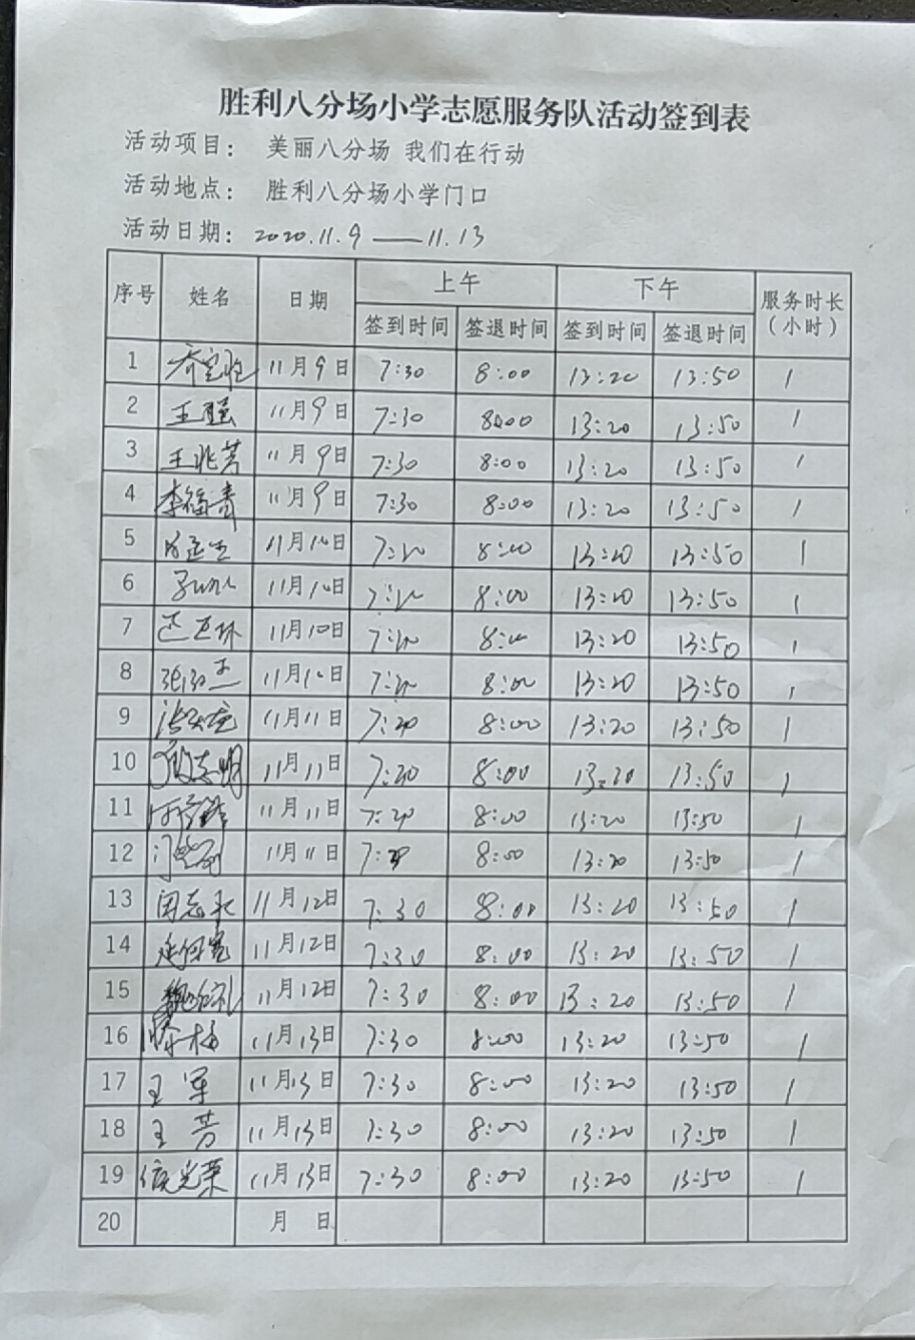 胜利八分场小学志愿服务队活动签到表
活动项目： 美丽八分场 我们在行动
活动地点： 胜利八分场小学门口
活动日期：2020.11.9——11.13
序号 姓名 日期 上午 下午 服务时长（小时）
签到时间 签退时间 签到时间 签退时间
1 11月9日 7:30 8:00 13:20 13:50 1
2 王强 11月9日 7:30 8:00 13:20 13:50 1
3 王兆芳 11月9日 7:30 8:00 13:20 13:50 1
4 李福青 11月9日 7:30 8:00 13:20 13:50 1
5 11月10日 8:00 13:20 13:50 1
6 11月10日 8:00 13:20 13:50 1
7 11月10日 8:00 13:20 13:50 1
8 11月10日 8:00 13:20 13:50 1
9 11月11日 8:00 13:20 13:50 1
10 11月11日 8:00 13:50 1
11 11月11日 8:00 13:20 13:50 1
12 11月11日 8:00 13:20 13:50 1
13 闫志永 11月12日 7:30 8:00 13:20 13:50 1
14 11月12日 7:30 8:00 13:20 13:50 1
15 11月12日 7:30 8:00 13:20 13:50 1
16 滕梅 11月13日 7:30 8:00 13:20 13:50 1
17 王军 11月13日 7:30 8:00 13:20 13:50 1
18 王芳 11月13日 7:30 8:00 13:20 13:50 1
19 11月13日 7:30 8:00 13:20 13:50 1
20 月 日